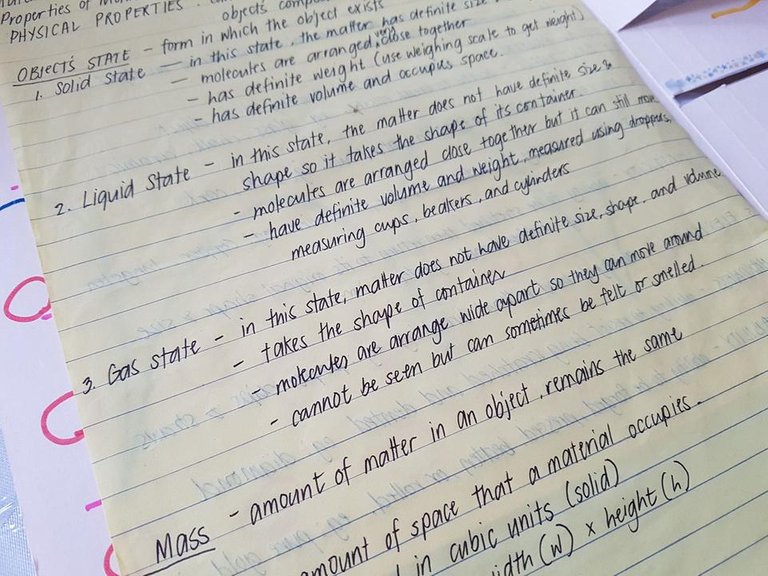 Properties of
PHYSICAL PROPERTIES
object's
OBJECTS STATE - form in which the object exists
1. Solid State - in this state, the matter has definite size
- molecules are arranged very close together
- has definite weight (use weighing scale to get weight)
- has definite volume and occupies space.
2. Liquid State - in this state, the matter does not have definite size &
shape so it takes the shape of its container
- molecules are arranged close together but it can still move
- have definite volume and weight, measured using droppers,
measuring cups, beakers, and cylinders
3. Gas State - in this state, matter does not have definite size, shape, and volume
- takes the shape of container
- molecules are arrange wide apart so they can move around
- cannot be seen but can sometimes be felt or smelled.
Mass - amount of matter in an object, remains the same
amount of space that a material occupies.
in cubic units (solid)
width (w) x height (h)